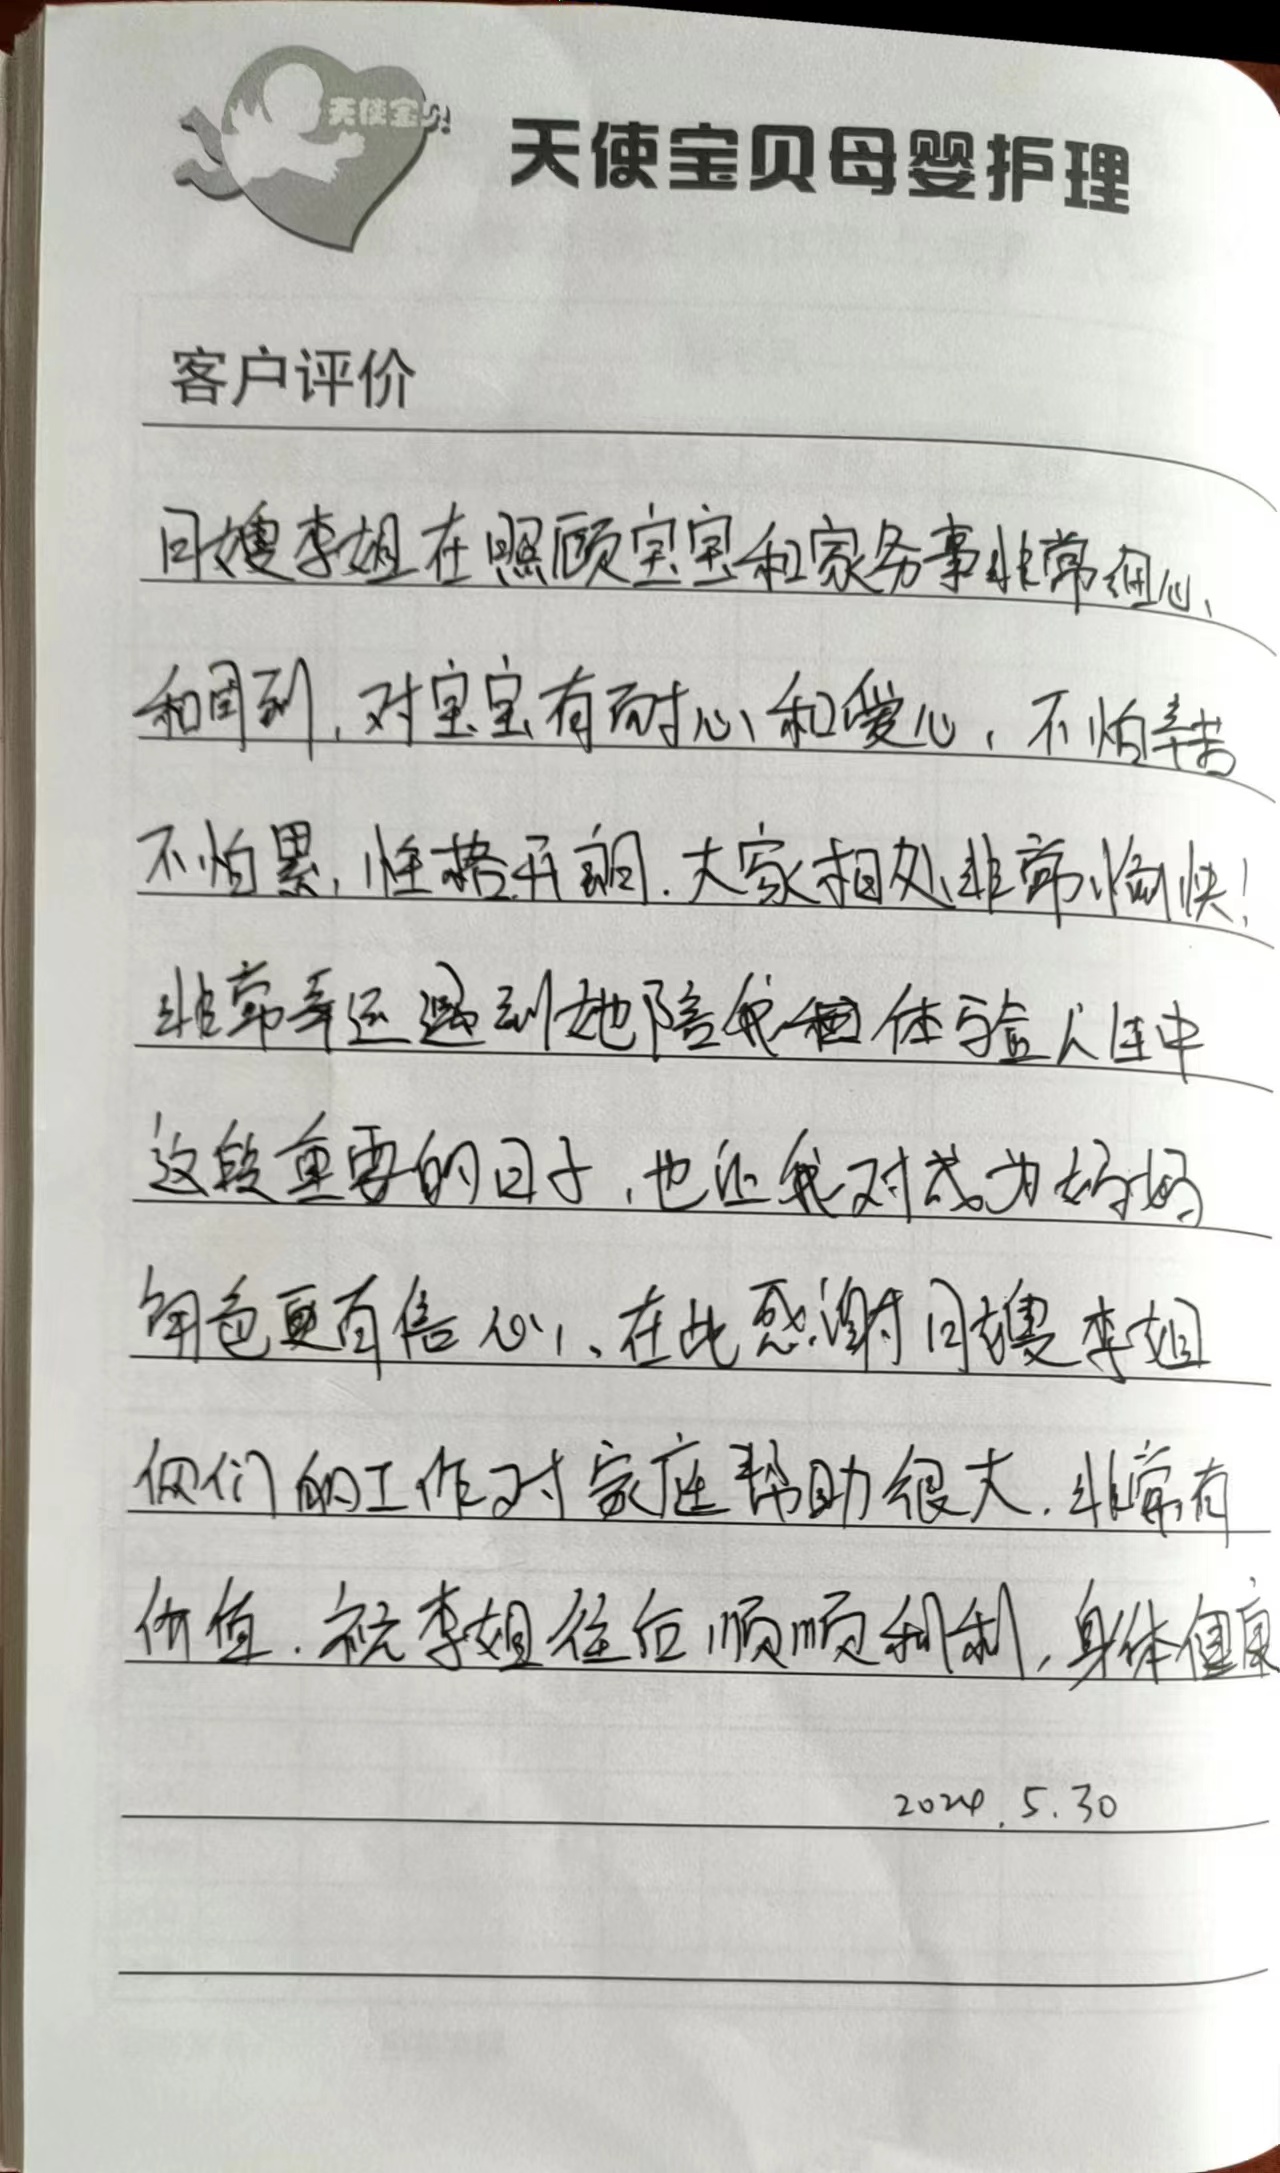 天使宝贝
天使宝贝母婴护理
客户评价
月嫂李姐在照顾宝宝和家务事非常细心、
和周到，对宝宝有耐心和爱心，不怕辛苦
不怕累，性格开朗．大家相处非常愉快！
非常幸运遇到她陪我 体验人生中
这段重要的日子，也让我对成为妈妈
角色更有信心、在此感谢月嫂李姐
你们的工作对家庭帮助很大．非常有
价值．祝李姐往后顺顺利利，身体健康
2024.5.30